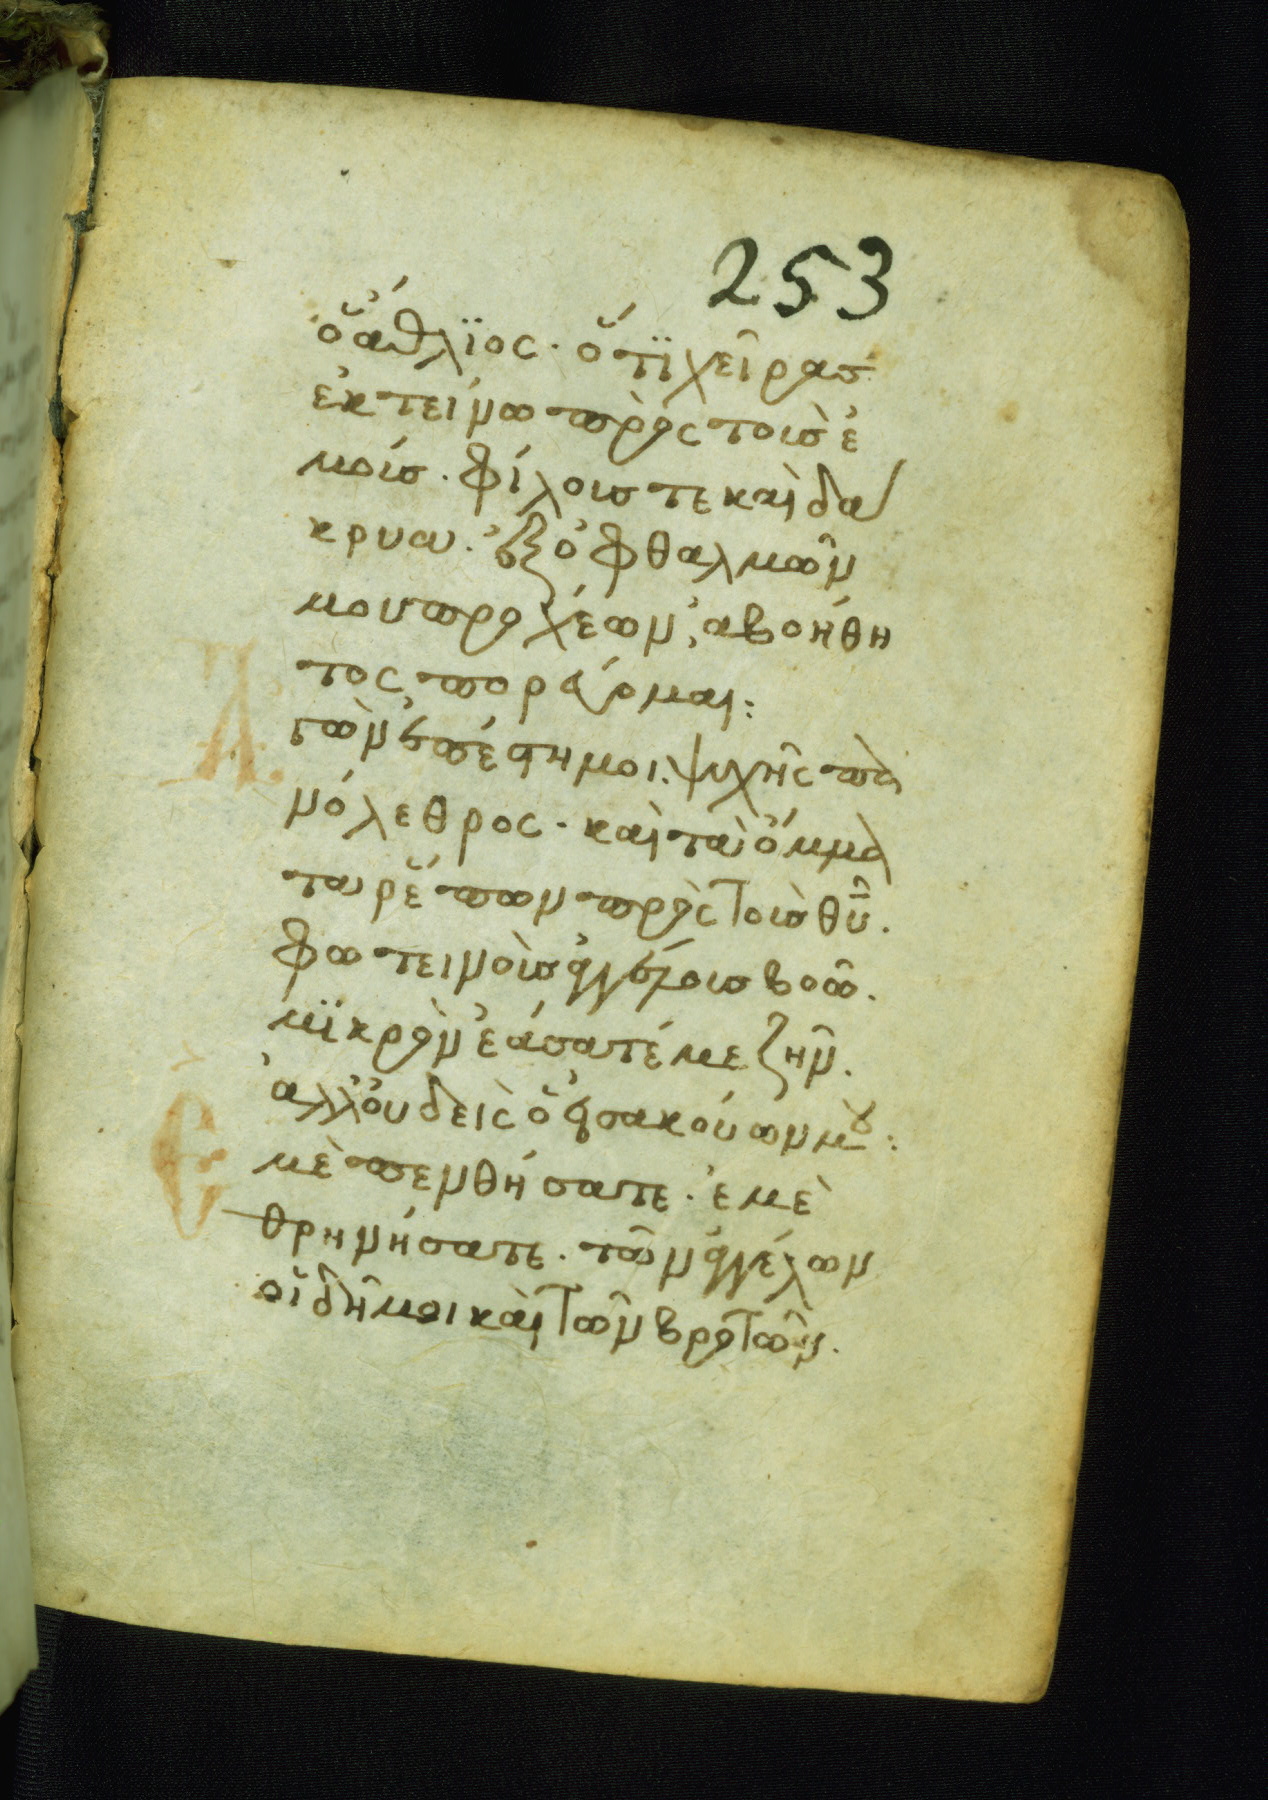 253
ὁ ἄθλϊος · ὅτϊ χεῖρας
ἐκτείνω πρὸς τοὶς ἐ
μοίσ · φίλοις τε καὶ δα
κρυα · ἐξ ὀφθαλμῶν
μου προχέων, ἀβοήθη
τος πορεύομαι :
Α
τῶν ἐπέστη μοι. ψυχῆς πα
νόλεθρος · καὶ τὰ ὄμμα
τα ῥέπων πρὸς τοὶς θῦ.
φωτεινοὶς ἀγγέλοις βοῶ.
μϊκρὸν ἐάσατέ με ζῆν.
ἀλλ' οὐδεὶς ὁ εἰσακούων μου :
Ε
μὲ πενθήσατε · ἐμὲ
θρηνήσατε · τῶν ἀγγέλων
οἱ δῆμοι καὶ τῶν βροτῶν.